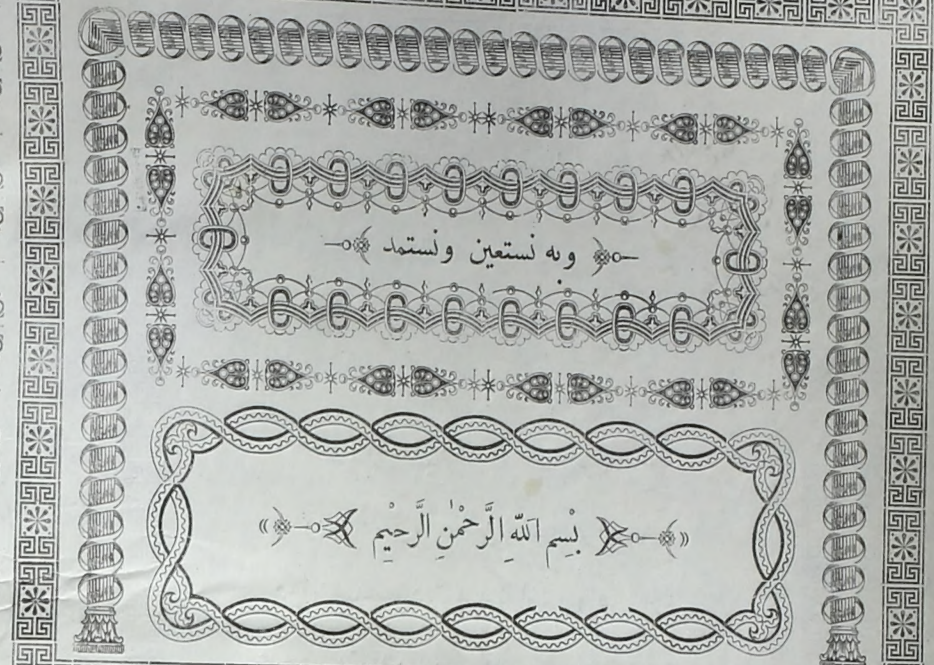 وبه نستعين ونستمد
بِسْمِ اللّٰهِ الرَّحْمٰنِ الرَّحِيْمِ